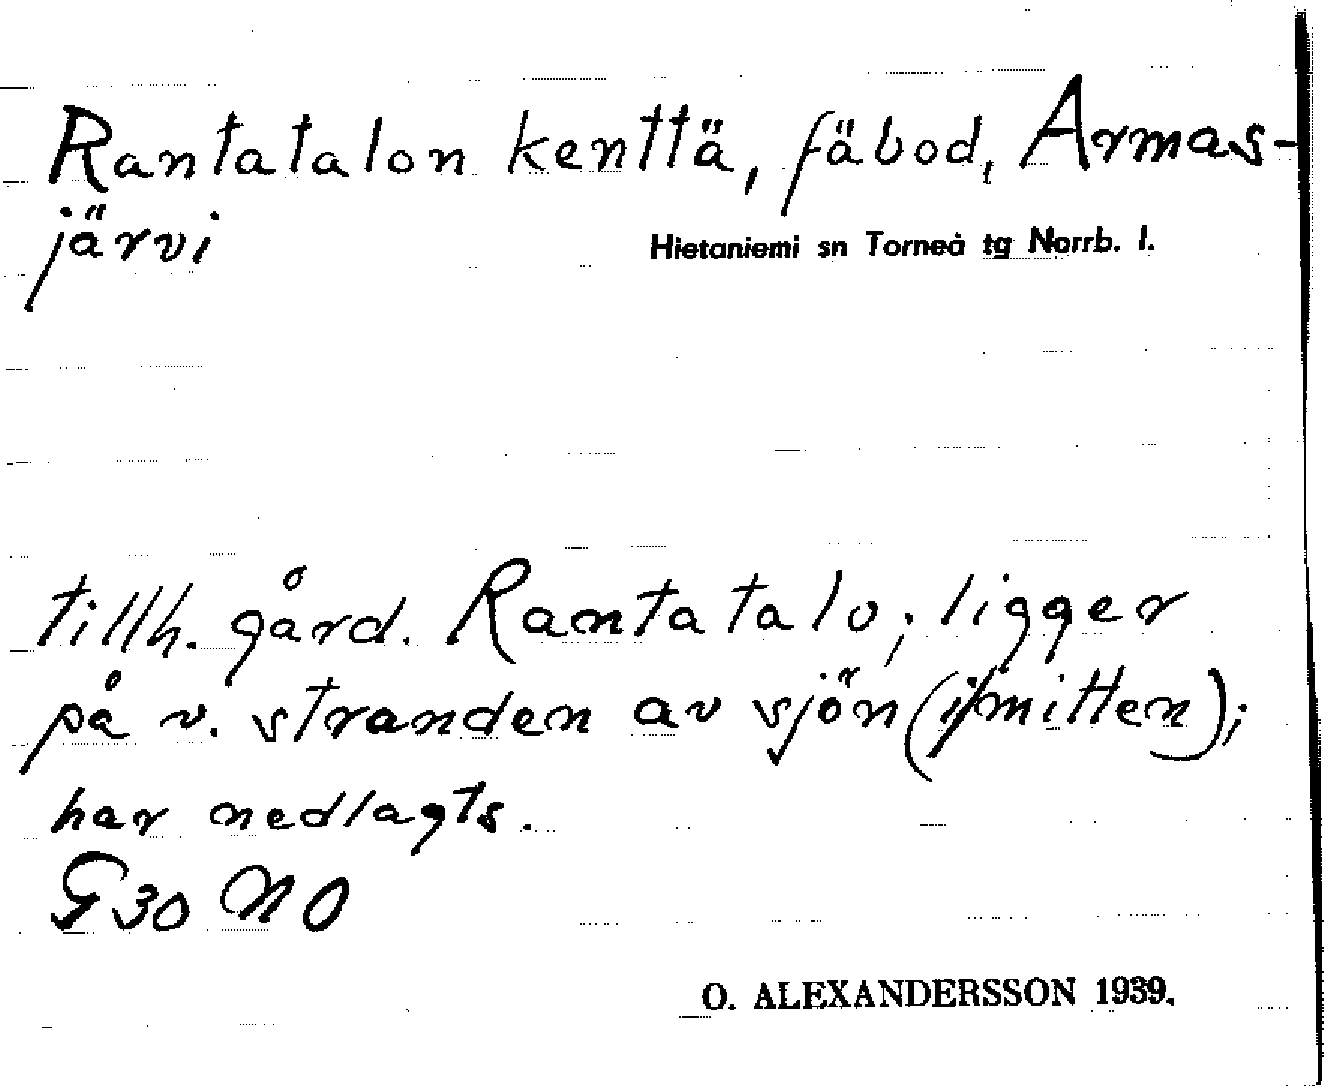 Rantatalon kenttä, fäbod, Armas-
järvi
Hietaniemi sn Torneå tg Norrb. l.
tillh. gård. Rantatalo; ligger
på v. stranden av sjön (i mitten);
har nedlagts.
G 30 NO
O. ALEXANDERSSON 1939.